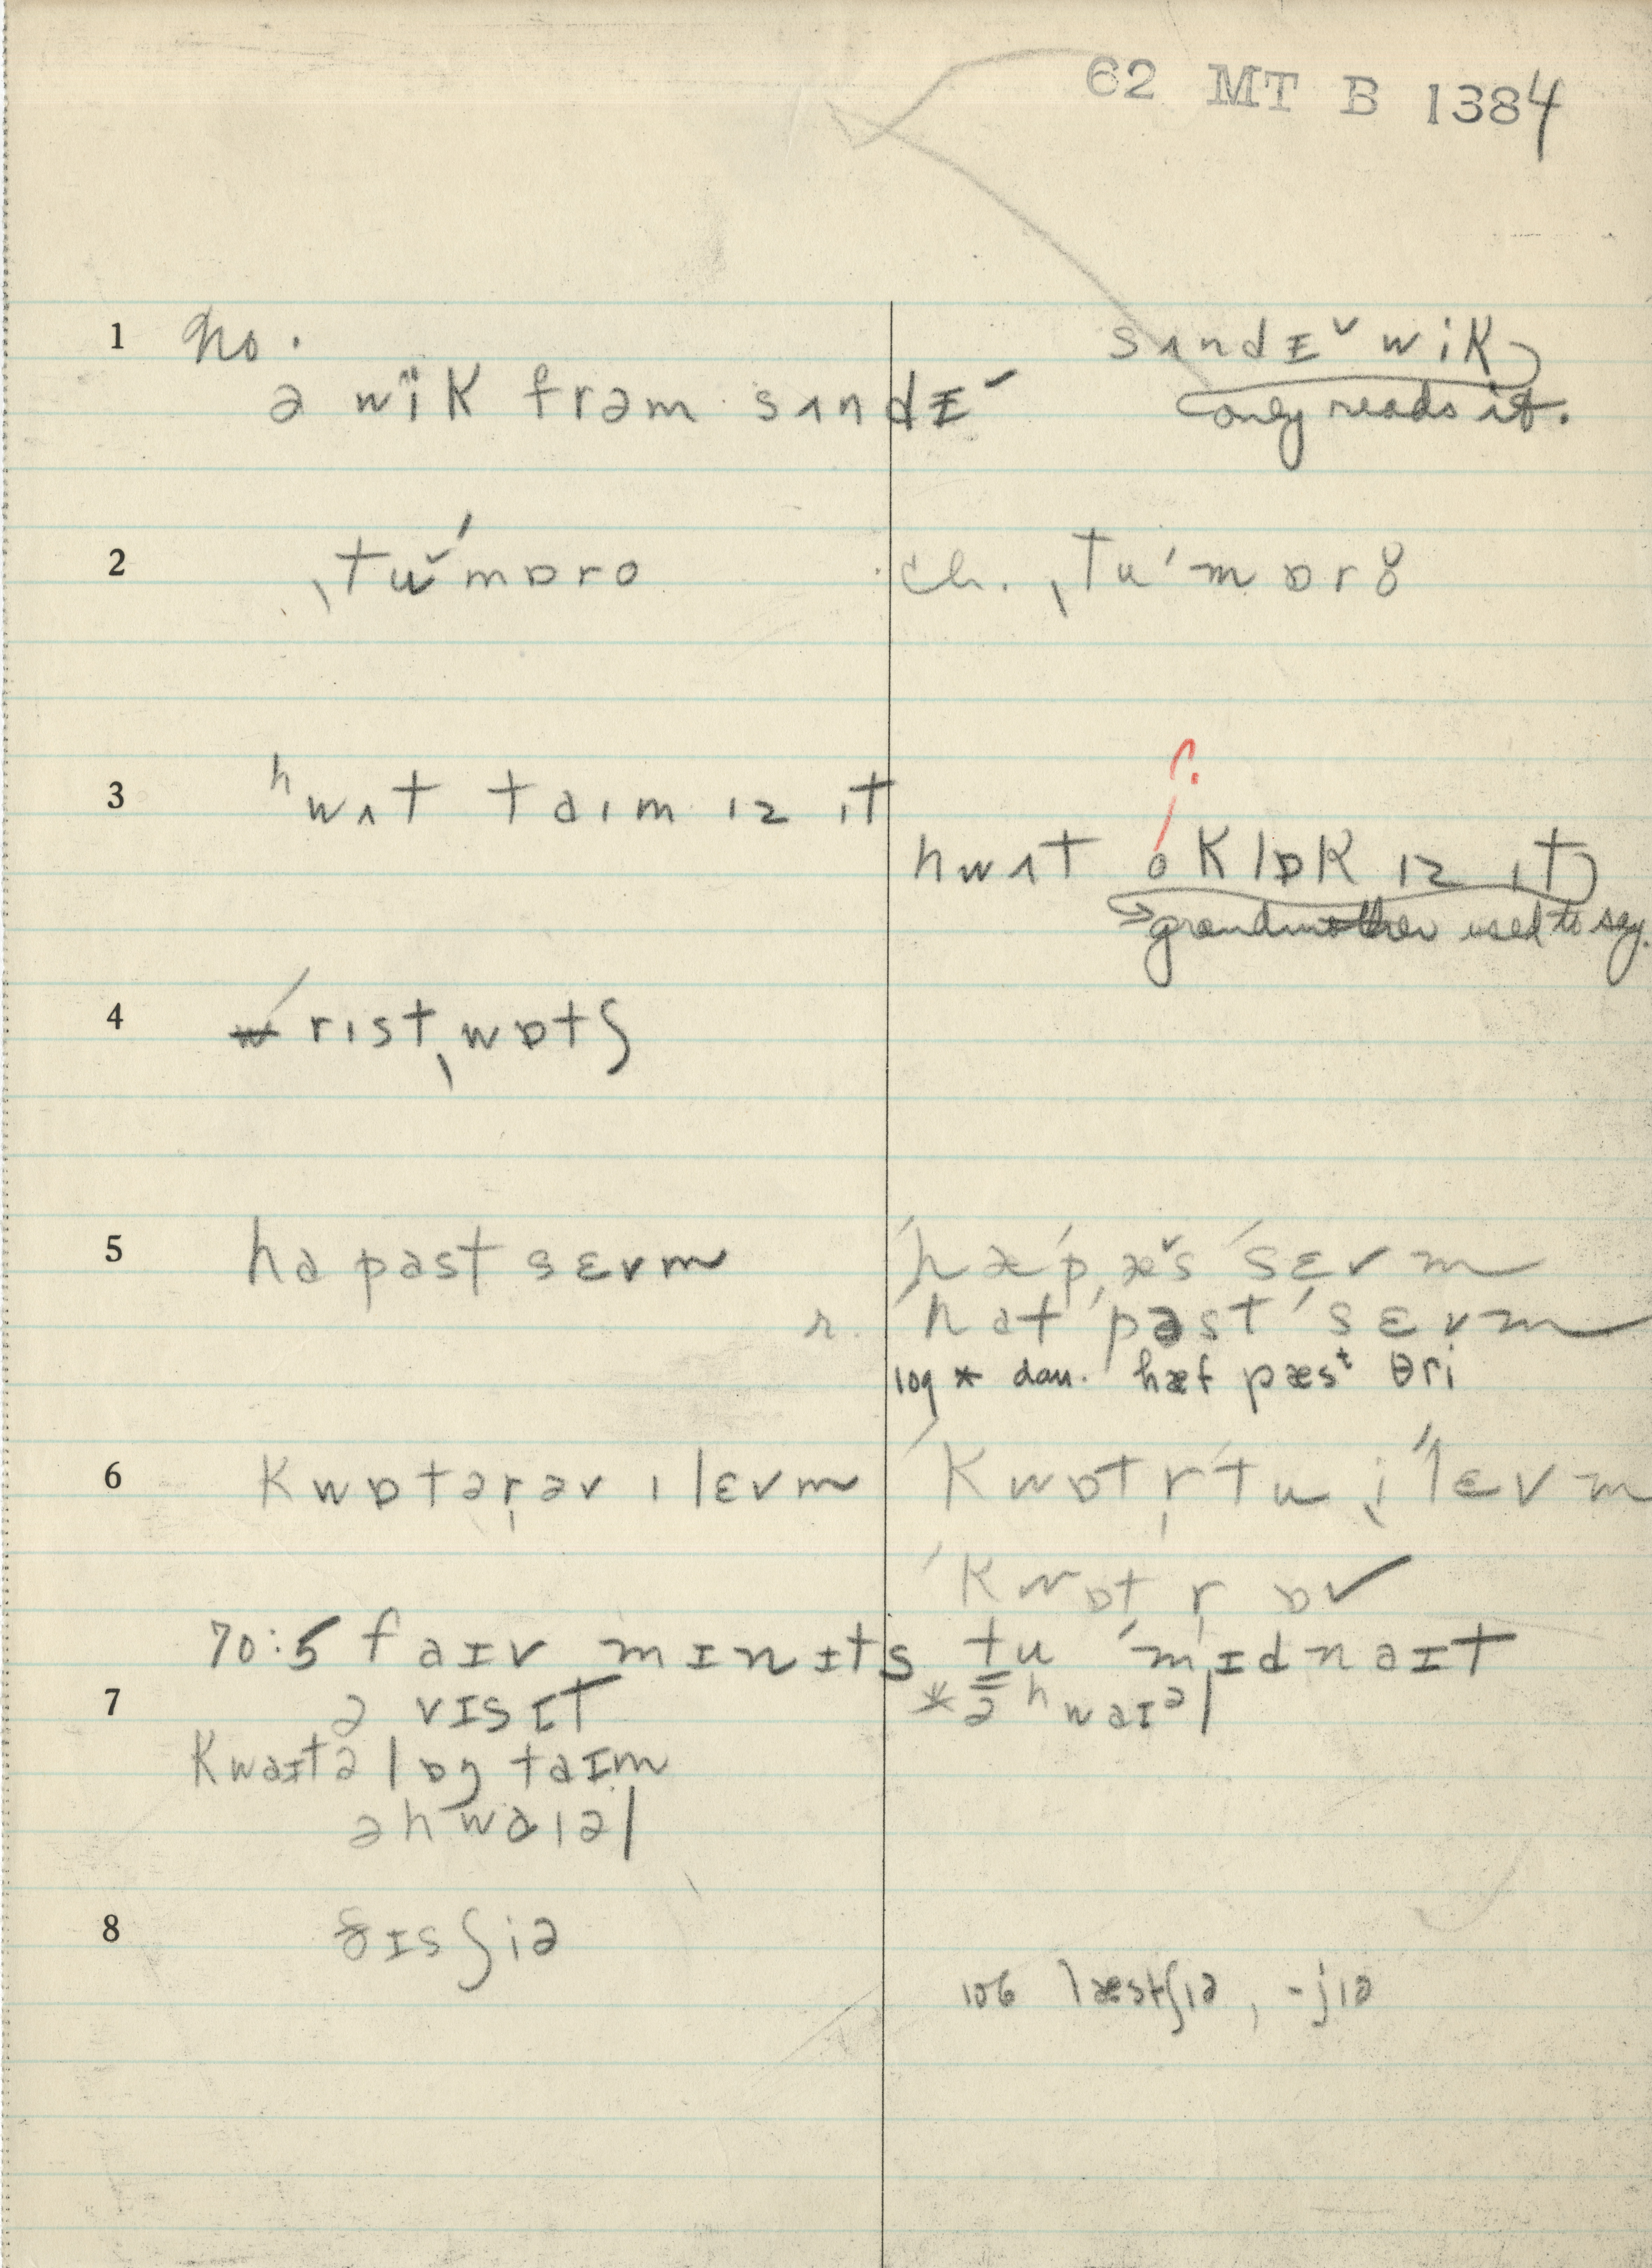 62 MT B 1384
1 no.
sʌndɪ˘ wik
ə wïk frəm sʌndɪ˘
only reads it.
2 ˌtu˘ˈmɒro
ch. ˌtuˈmɒrŏ
3 ʰwʌt taɪm ɪz ɪt
?
hwʌt oklɒk ɪz ɪt
grandmother used to say.
4 ˈrɪstˌwɒtʃ
5 ha past sɛvm
ˈhæˈpˌæ˘s ˈsɛvm
r. ˈhat ˈpast ˈsɛvm
log * dau. hæf pæsᵗ θri
6 kwɒtər̩əv ɪlɛvm
ˈkwɒtr̩ˈtu ˌiˈlɛvm
ˈkwɒt r̩ ɒv
70:5 faɪv mɪnɪts tu ˈmɪdnaɪt
7 ə vɪsɪt
* ə ʰwaɪᵊl
kwaɪtə lɒŋ taɪm
əhwaɪəl
8 ðɪsʃiə
106 læstʃɪə, -jɪə